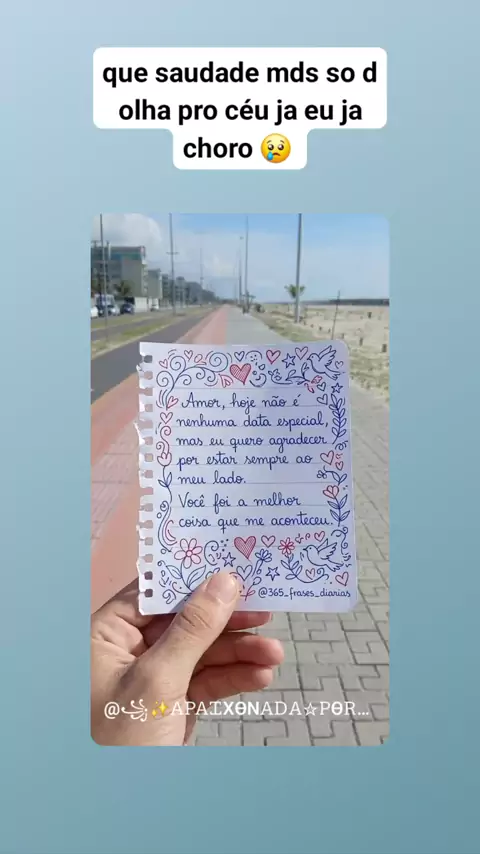 que saudade mds so d
olha pro céu ja eu ja
choro 😢
Amor, hoje não é
nenhuma data especial,
mas eu quero agradecer
por estar sempre ao
meu lado.
Você foi a melhor
coisa que me aconteceu.
@365_frases_diarias
@꧁✨A͏P͏A͏I͏XѲNA͏D͏A͏☆PѲR...